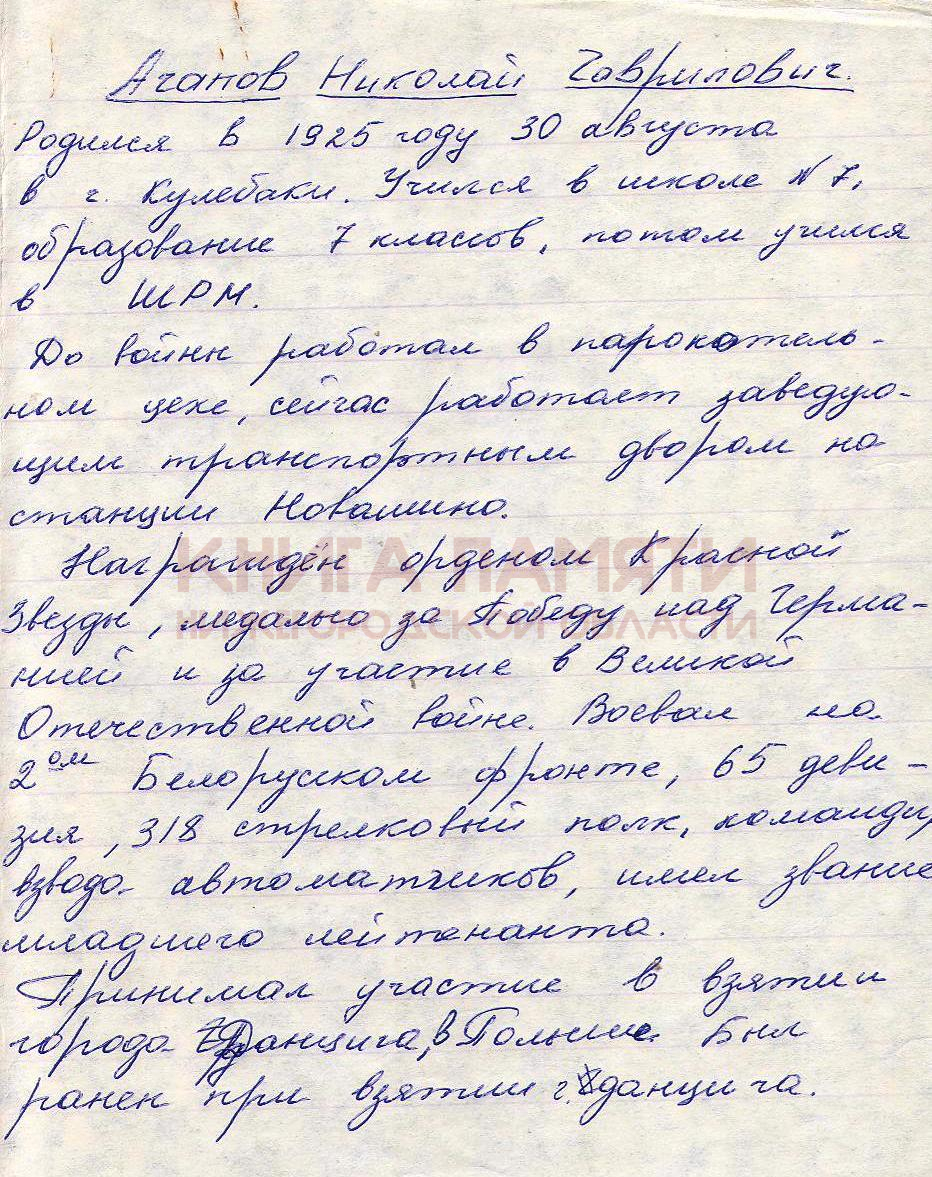 Агапов Николай Гаврилович.
Родился в 1925 году 30 августа
в г. Кулебаки. Учился в школе №7,
образование 7 классов, потом учился
в ШРМ.
До войны работал в парокотель-
ном цехе, сейчас работает заведую-
щим транспортным двором на
станции Новашино.
Награждён орденом Красной
КНИГА ПАМЯТИ
Звезды, медалью за Победу над Герма-
НИЖЕГОРОДСКОЙ ОБЛАСТИ
нией и за участие в Великой
Отечественной войне. Воевал на
2ом Белоруском фронте, 65 деви-
зия, 318 стрелковый полк, командир
взвода автоматчиков, имел звание
младшего лейтенанта.
Принимал участие в взятии
города Данцига, в Польше. Был
ранен при взятии г. данцига.